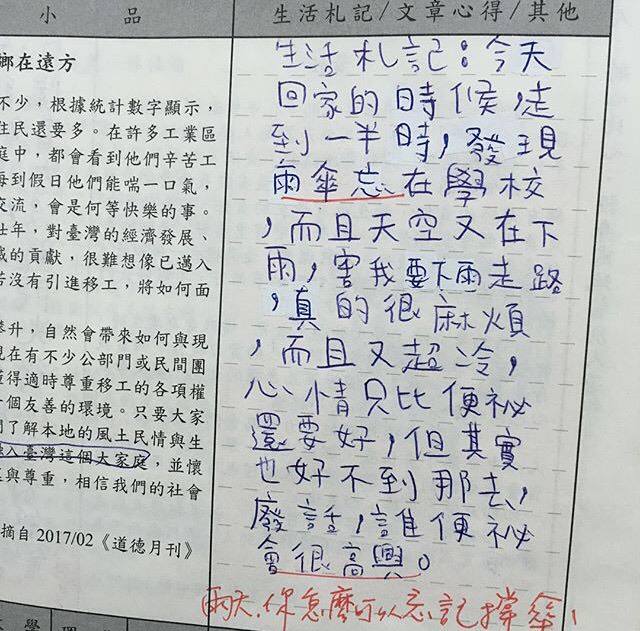 小 品
鄉在遠方
不少，根據統計數字顯示，
住民還要多。在許多工業區
庭中，都會看到他們辛苦工
每到假日他們能喘一口氣，
交流，會是何等快樂的事。
壯年，對臺灣的經濟發展、
的貢獻，很難想像已邁入
若沒有引進移工，將如何面
攀升，自然會帶來如何與現
現在有不少公部門或民間團
懂得適時尊重移工的各項權
一個友善的環境。只要大家
們了解本地的風土民情與生
融入臺灣這個大家庭，並懷
與尊重，相信我們的社會
摘自 2017/02《道德月刊》
生活札記/文章心得/其他
生活札記：今天
回家的時候，走
到一半時，發現
雨傘忘在學校
，而且天空又在下
雨，害我要下雨走路
，真的很麻煩
，而且又超冷，
心情只比便祕
還要好，但其實
也好不到那去，
廢話，誰便祕
會很高興。
雨天，你怎麼可以忘記撐傘！